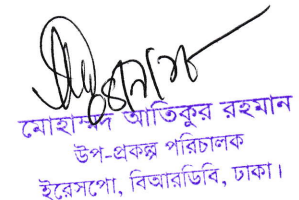 মোহাম্মদ আতিকুর রহমান
উপ-প্রকল্প পরিচালক
ইরেসপো, বিআরডিবি, ঢাকা।